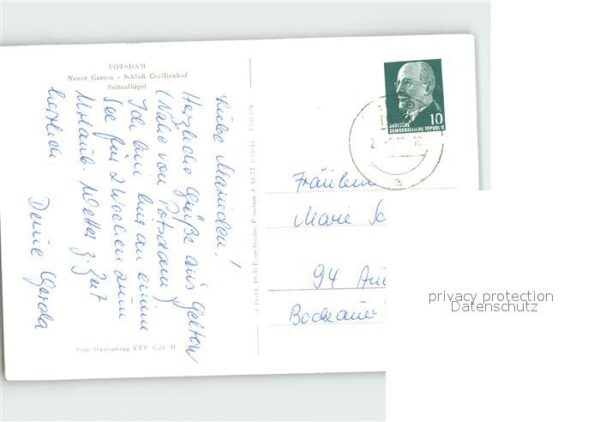 POTSDAM
Neuer Garten - Schloß Cecilienhof
Seitenflügel
Liebe Mariechen!
Herzliche Grüße aus Geltow
(Nähe von Potsdam)
Ich bin hier an einem
See für 2 Wochen zum
Urlaub. Wetter z. Zeit
herrlich
Deine Gerda
10
DEUTSCHE
DEMOKRATISCHE REPUBLIK
Fräulein
Marie
94
Bockauer
privacy protection
Datenschutz